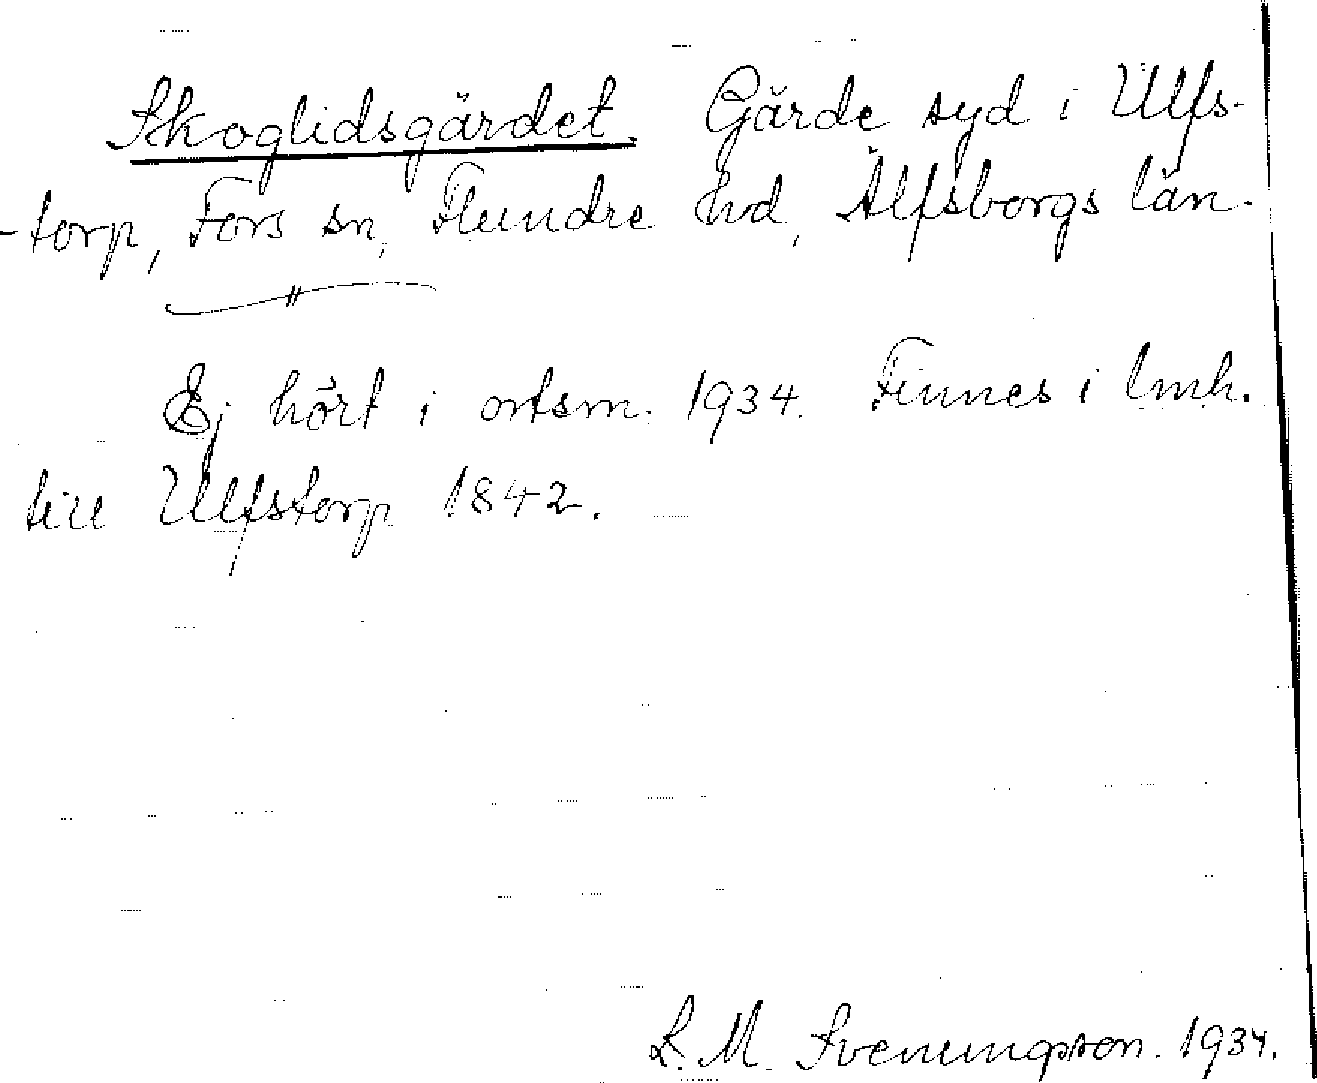 Skoglidsgärdet. Gärde syd i Ulfs-
-torp, Fors sn, Flundre hd, Älfsborgs län.
Ej hört i ortsm. 1934. Finnes i lmh.
till Ulfstorp 1842.
L. M. Svenungsson. 1934.